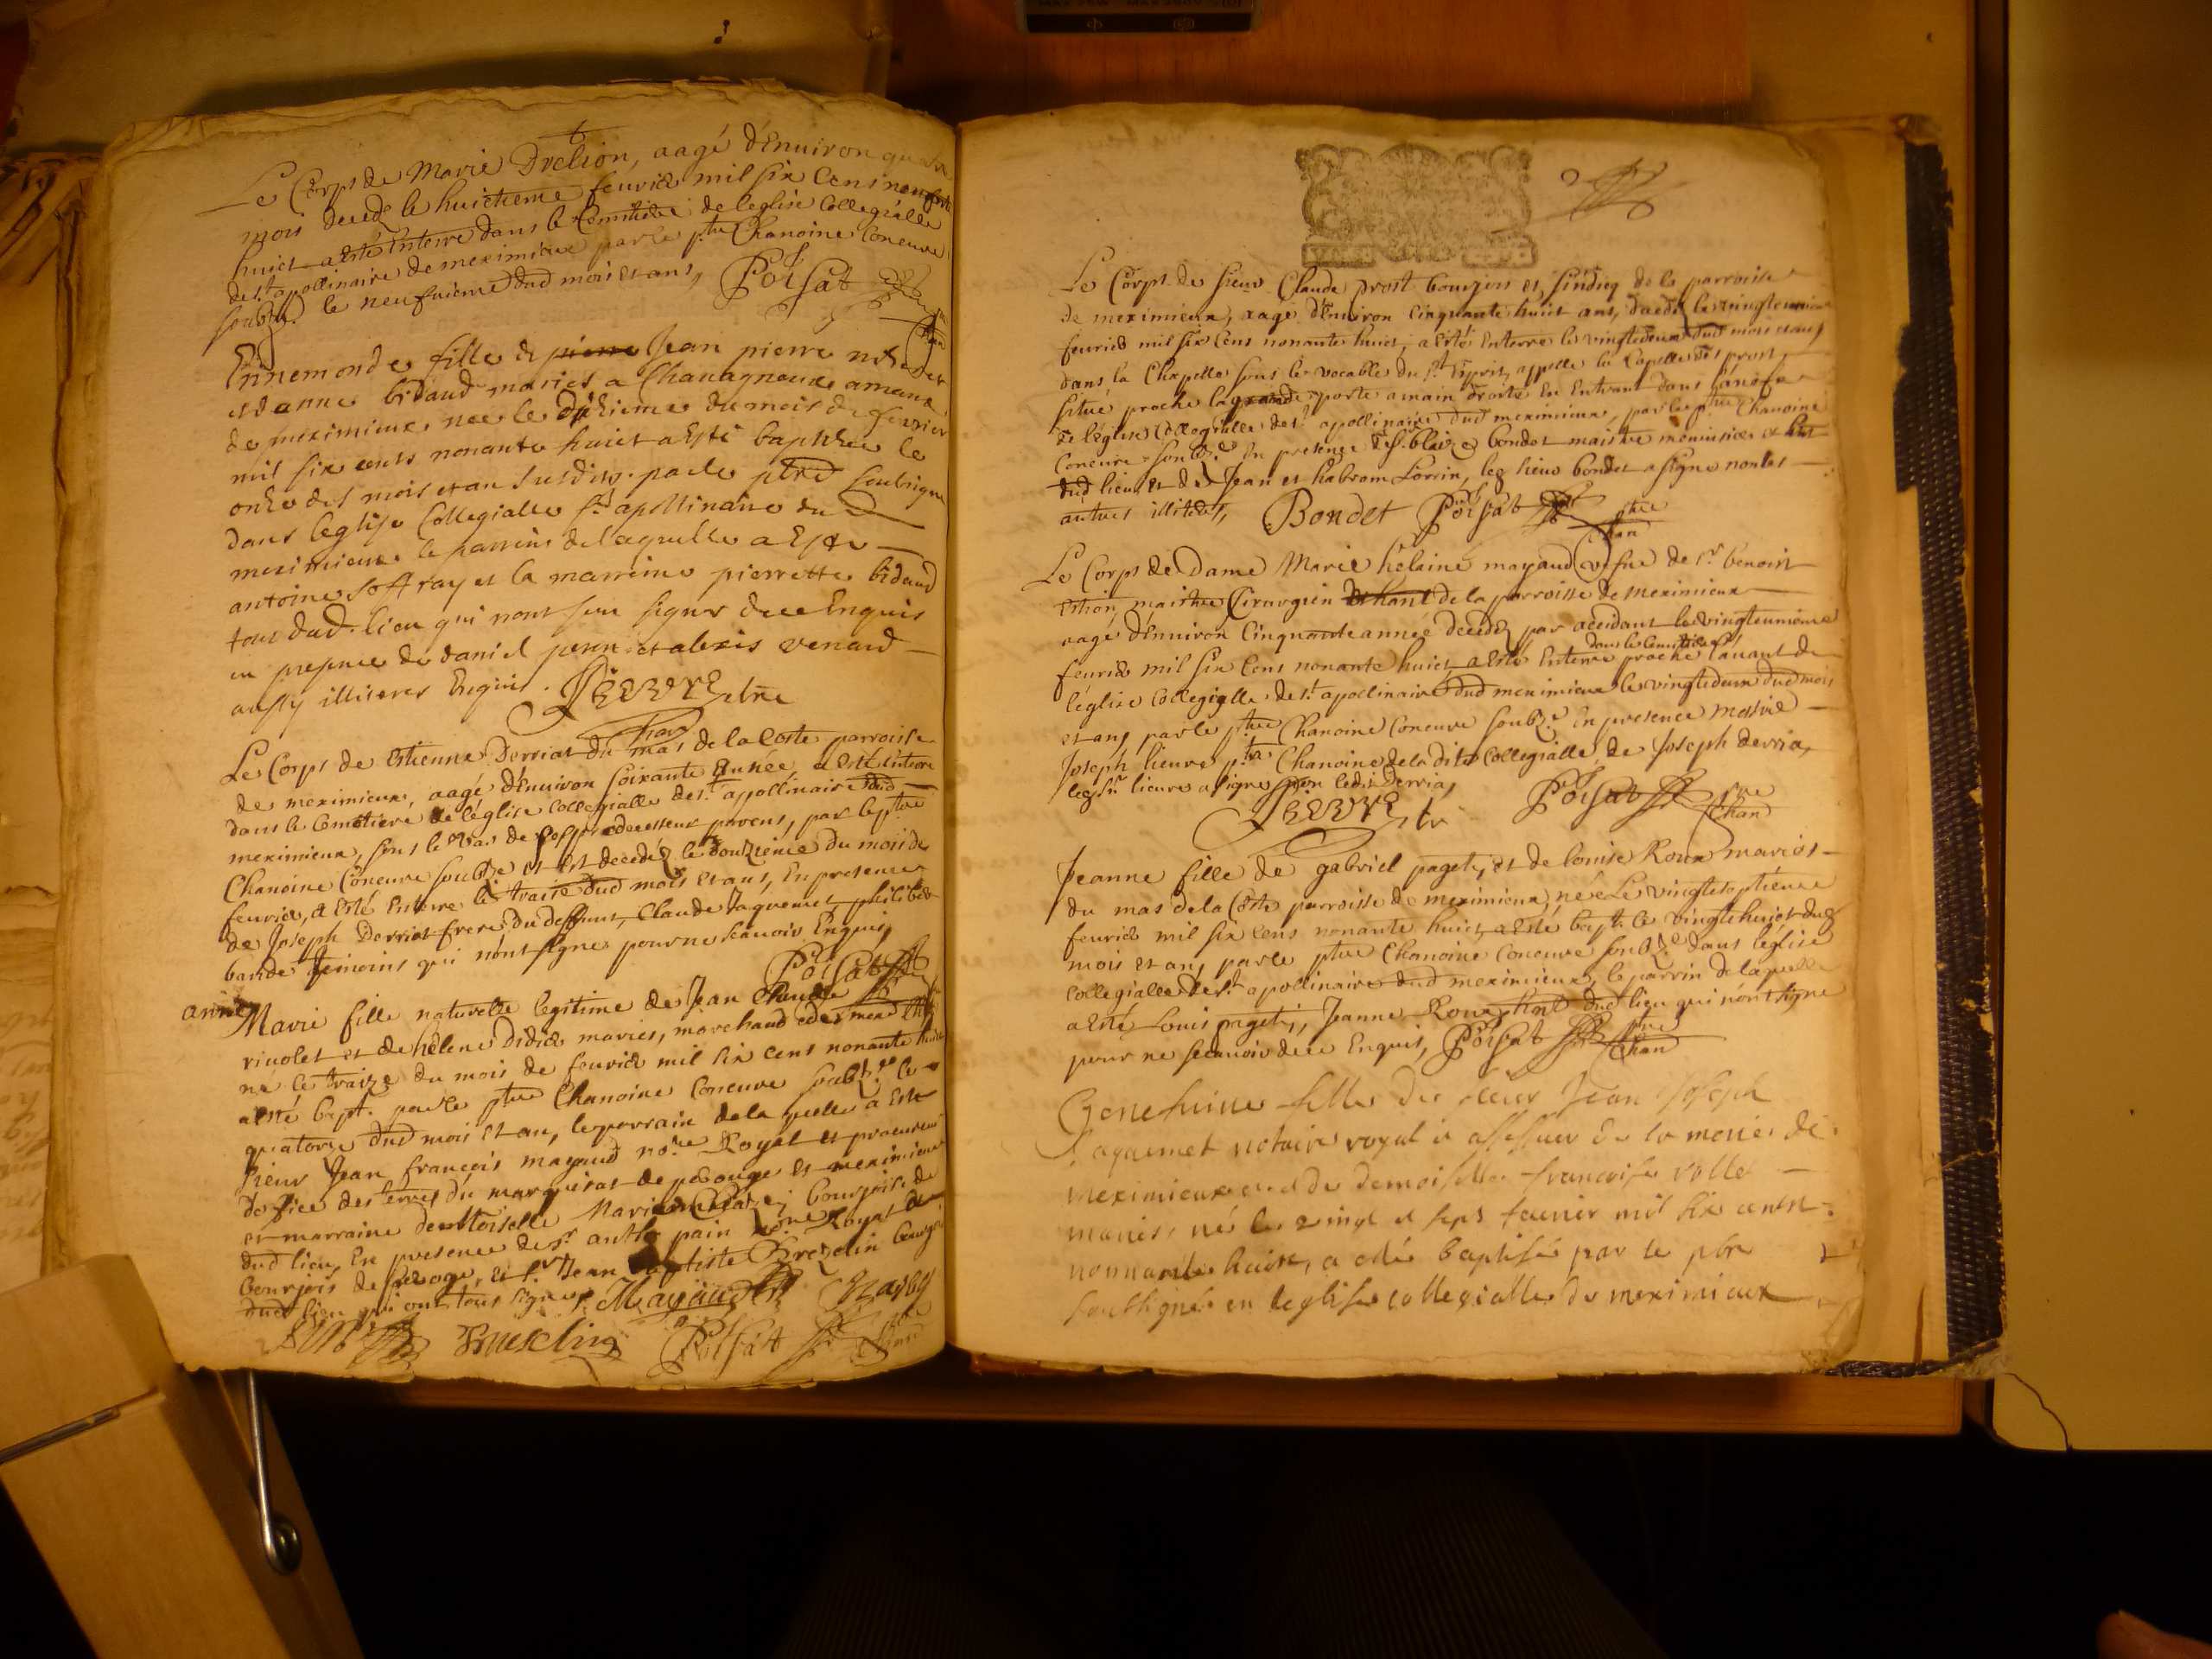 Le Corps de Marie Drelion, aagé d'Enuiron
mois decedé le huictieme feurier mil six Cens nonante
huict a Esté Enterré dans le Cemitiere de leglise Collegialle
de st apollinaire de meximieux par le ptre Chanoine Concuré
soubz. le neufuieme dud mois et ans, Poisat
Chan
Ennemonde fille de Jean pierre
et danne bidaud mariés a Chauagneux ameux
de meximieux née le dixieme du mois de feurier
mil six cents nonante huict a Esté baptisée le
onze des mois et an susdits par le ptre soubsigné
dans leglise Collegialle st apollinaire dud
meximieux le parrins de laquelle a Esté
antoine Joffray et la marrine pierrette bidaud
tous dud. lieu qui nont sceu signer de ce Enquis
en presence de daniel peron et alexis venard
aussy illiteres Enquis. Lieuvre ptre
Chan
Le Corps de Estienne Derriat du mas de la Coste parroisse
de meximieux, aagé d'Enuiron soixante année, a esté Enterré
dans le Cemetiere de léglise collegialle de st apollinaire dud
meximieux, sous le vas de ses predecesseur parens, par le ptre
Chanoine Concuré soubzé et est decedéz le douzieme du mois de
feurier, et Esté Enterré le traise dud mois et ans, En presence
de Joseph Derriat frere du deffunt, Claude Jaquemet, philibert
barde temoins qui n'ont signes pour ne scauoir Enquis,
Poisat
Marie fille naturelle legitime de Jean Claude
riuolet et de hélene Didier mariés, marchand
né le traize du mois de feurier mil six cens nonante huict
a esté bapt. par le ptre Chanoine Concuré soubzé le
quatorze dud mois et an, le parrain de la quelle a Esté
sieur Jean françois mayaud nore Royal et procureur
doffice des terres du marquisat de et meximieux
et marraine demoiselle Marie bourgoise de
dud lieu, En presence de sr anthe pain nore Royal
bourjois de et sr Jean baptiste Bruzelin bourgois
dud lieu qui ont tous signes, Mayaud
Bruzelin Poisat Chan
2
Le Corps de sieur Claude prost bourgois et, sindicq de la parroisse
de meximieux, aagé d'Enuiron Cinquante huict ans, decedé le vingtunieme
feurier mil six Cens nonante huict, a Esté Enterré le vingtdeux dud mois et ans,
dans la Chapelle sous le vocable du st Esprit, appellé la Capelle des prost,
situé proche la grande porte a main droite En Entrant dans la nefue
de léglise Collegialle de st apollinaire dud meximieux, par le ptre Chanoine
Concuré soubzé, En presence de sr blaize bondet maistre menuisier
dud lieu, et de Jean et habram Lorrin, leq. sieur bondet a signé non les
autres illiteres, Bondet Poisat ptre
Chan
Le Corps de dame Marie hélaine mayaud vefue de sr benoist
Estion, maistre Cirurgien de la parroisse de meximieux
aagé d'Enuiron Cinquante année decedéz par accidant le vingtunieme
dans le Cemitiere
feurier mil six Cens nonante huict, a Esté Enterré proche lauant de
léglise Collegialle de st apollinaire dud meximieux le vingtdeux dud mois
et ans par le ptre Chanoine Concuré soubzé En presence messire
Joseph lieure ptre Chanoine de la dite Collegialle, de Joseph derria,
leq sr lieure a signé non ledit Derria,
Lieuvre ptre Poisat ptre
Chan
Jeanne fille de gabriel paget, et de louise Roux mariés
du mas de la Coste parroisse de meximieux, née Le vingtseptieme
feurier mil six Cens nonante huict, a esté bapt. le vingthuict dud
mois et ans par le ptre Chanoine Concuré soubzé dans léglise
Collegialle de st apollinaire dud meximieux, le parrin de laquelle
a Esté Louis paget, Jeanne Roux dud lieu qui n'ont signé
pour ne scauoir de ce Enquis, Poisat ptre
Chan
Geneuieue fille de sieur Jean Joseph
Jaquemet notaire royal et assesseur de la merie de
meximieux et de demoiselle francoise rolle
mariés, né le vingt et sept feurier mil six cents
nonnante huict, a esté baptisée par le ptre
soubsigné en leglise collegialle de meximieux